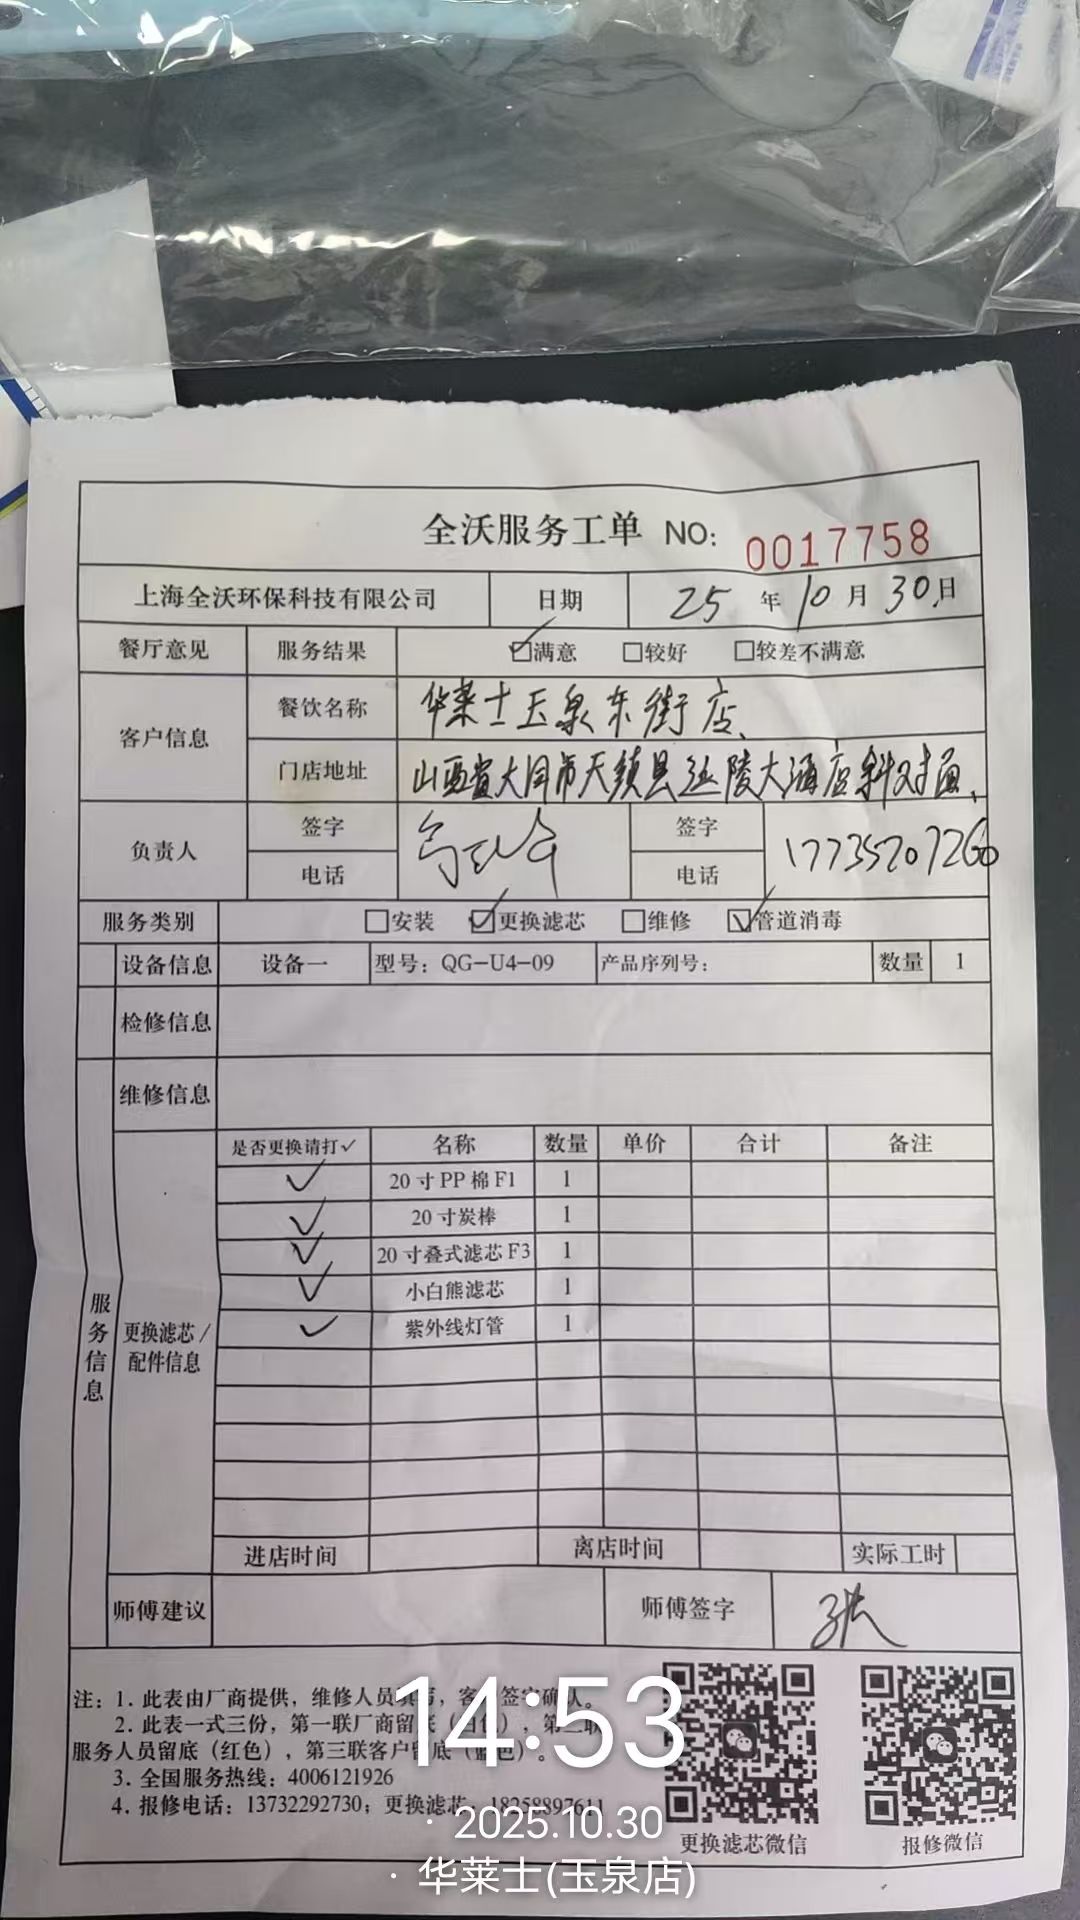 全沃服务工单 NO: 0017758
上海全沃环保科技有限公司 日期 25 年 10 月 30 日
餐厅意见 服务结果 ☑满意 □较好 □较差不满意
客户信息 餐饮名称 华莱士玉泉东街店
门店地址 山西省大同市天镇县延陵大酒店斜对面
负责人 签字 签字
电话 电话 17735207260
服务类别 □安装 ☑更换滤芯 □维修 ☑管道消毒
设备信息 设备一 型号：QG-U4-09 产品序列号： 数量 1
检修信息
维修信息
服务信息
更换滤芯/配件信息
是否更换请打✓ 名称 数量 单价 合计 备注
✓ 20寸PP棉F1 1
✓ 20寸炭棒 1
✓ 20寸叠式滤芯F3 1
✓ 小白熊滤芯 1
✓ 紫外线灯管 1
进店时间 离店时间 实际工时
师傅建议 师傅签字
注：1. 此表由厂商提供，维修人员填写，客户签字确认。
2. 此表一式三份，第一联厂商留底（白色），第二联
服务人员留底（红色），第三联客户留底（蓝色）。
3. 全国服务热线：4006121926
4. 报修电话：13732292730；更换滤芯 18258897611
更换滤芯微信 报修微信
14:53
· 2025.10.30
· 华莱士(玉泉店)